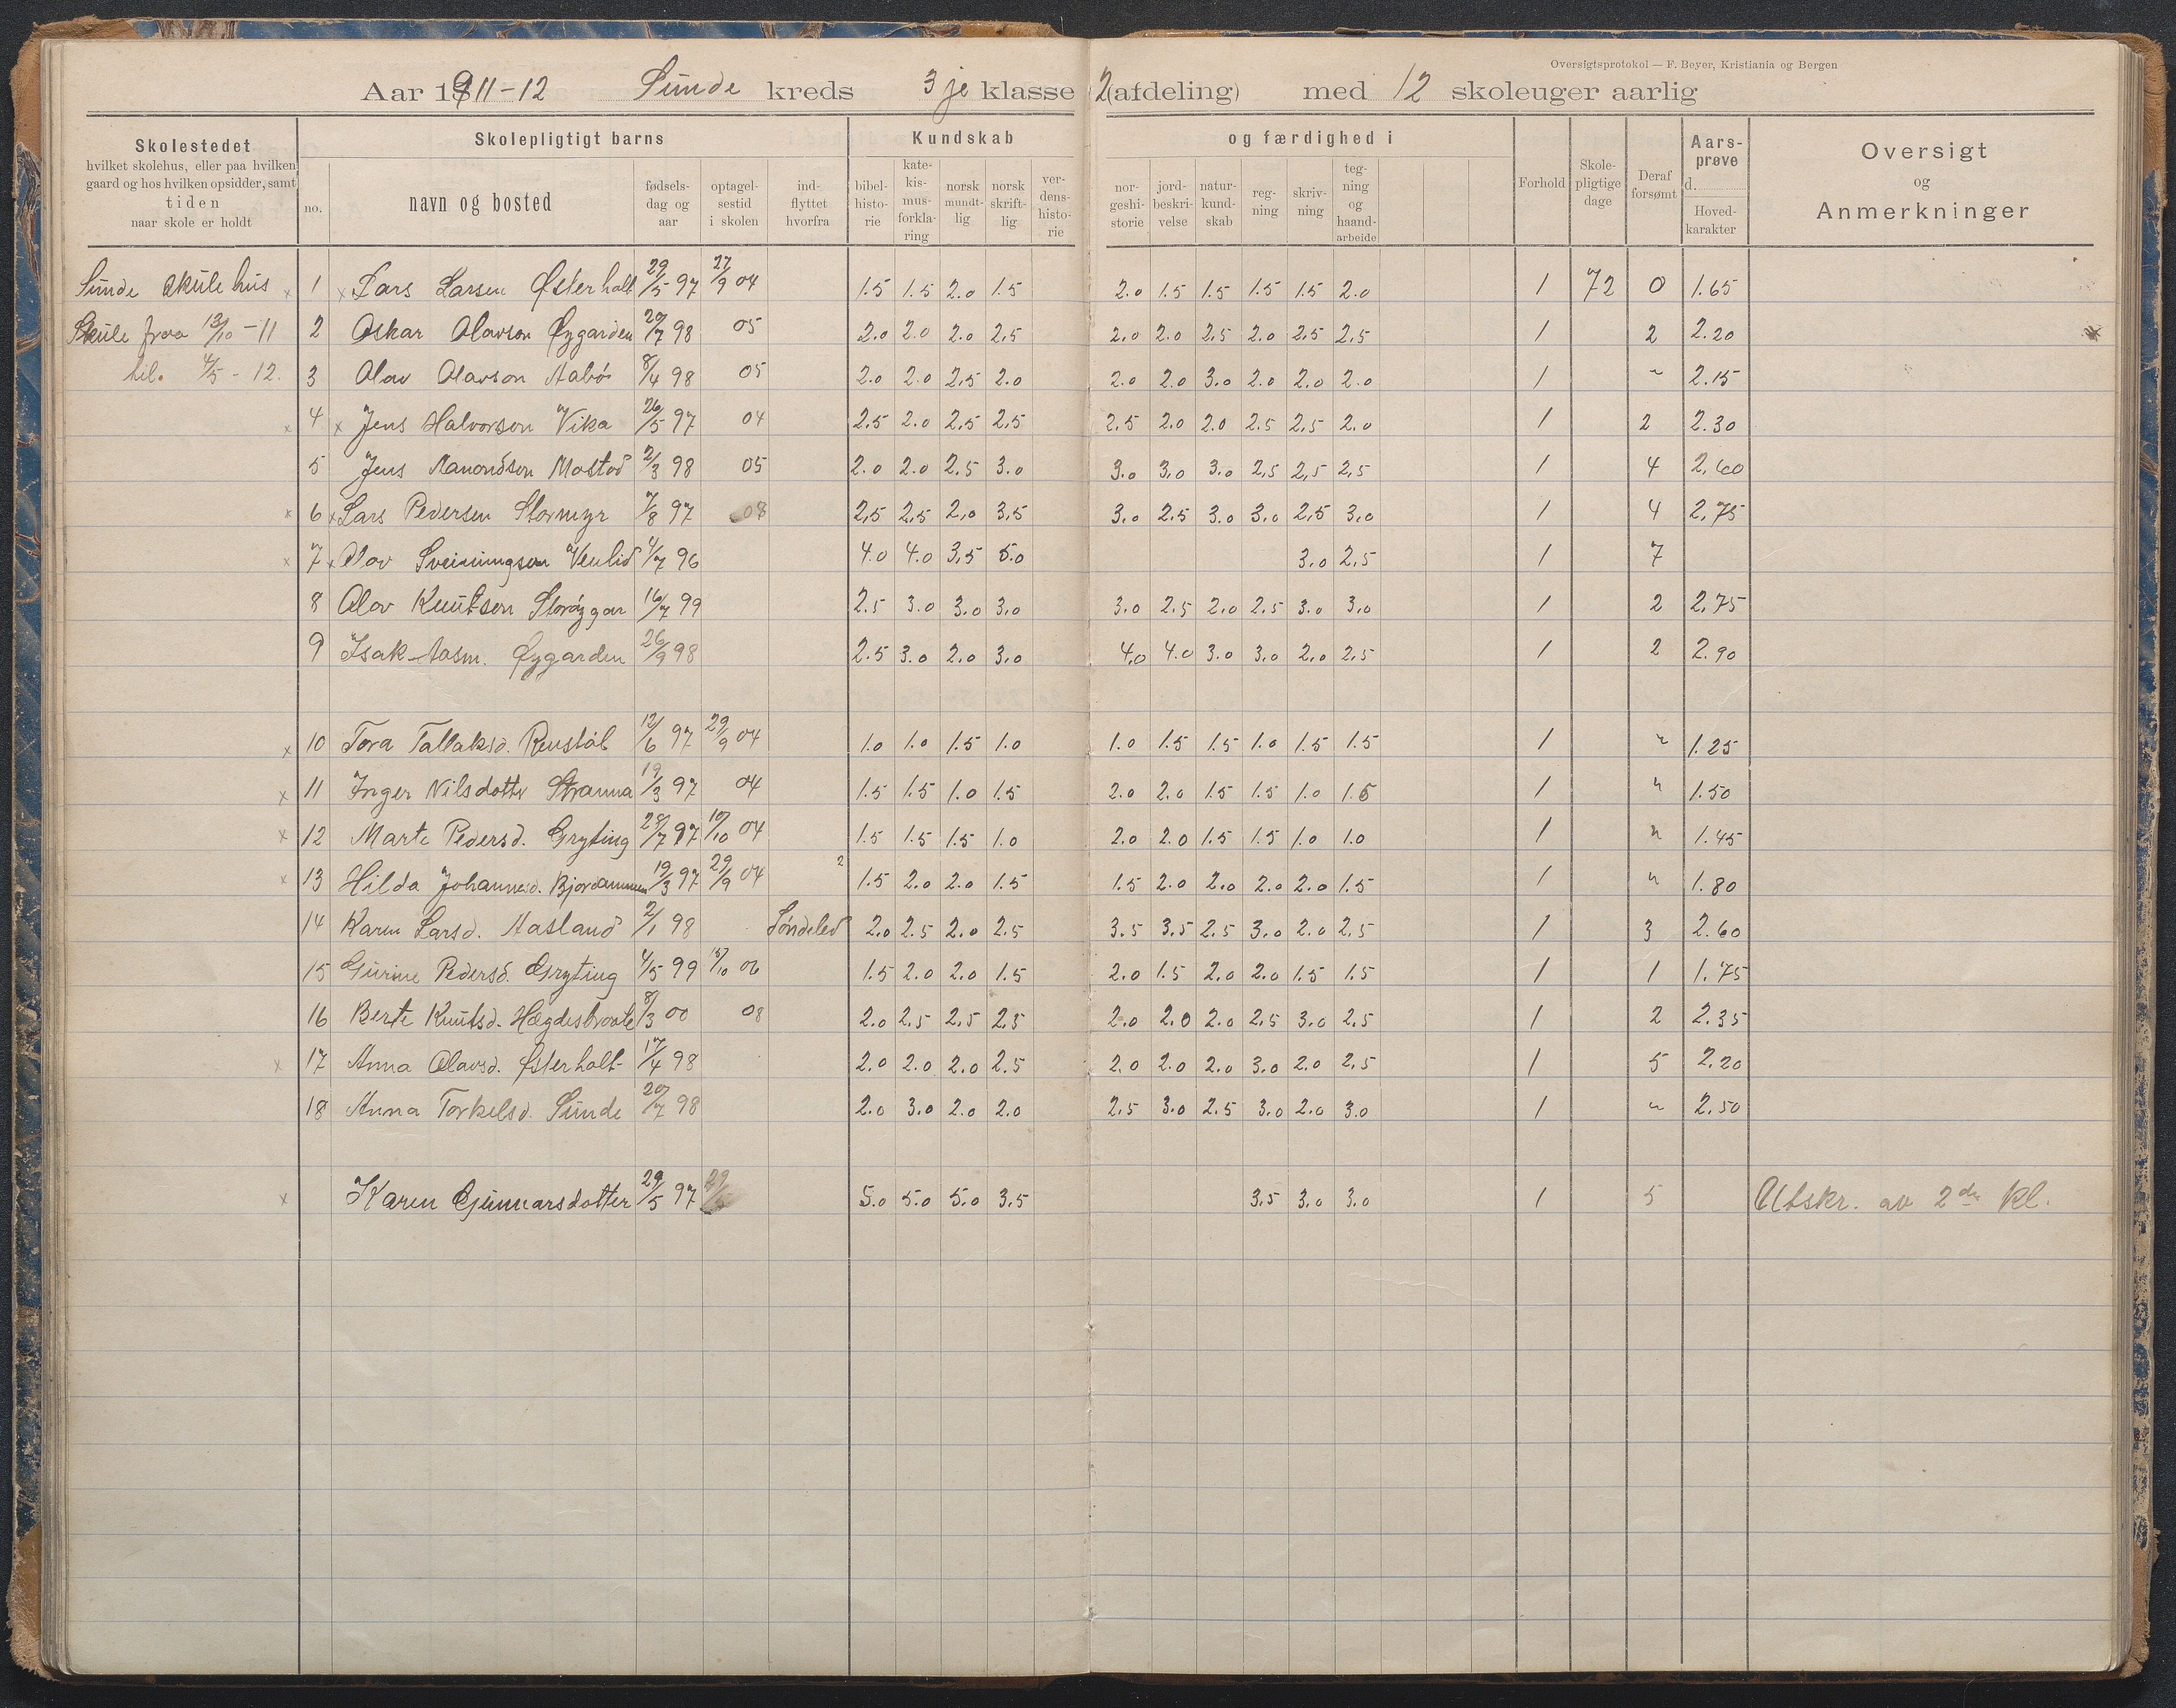 Oversigtsprotokol — F. Beyer, Kristiania og Bergen
Aar 1911-12 Sunde kreds 3je klasse 2(afdeling) med 12 skoleuger aarlig
Skolestedet
hvilket skolehus, eller paa hvilken
gaard og hos hvilken opsidder, samt
tiden
naar skole er holdt
Skolepligtigt barns
no. navn og bosted
fødsels-
dag og
aar
optagel-
sestid
i skolen
ind-
flyttet
hvorfra
Kundskab og færdighed i
bibel-
histo-
rie
kate-
kis-
mus-
forkla-
ring
norsk
mundt-
lig
norsk
skrift-
lig
ver-
dens-
histo-
rie
nor-
geshi-
storie
jord-
beskri-
velse
natur-
kund-
skab
reg-
ning
skriv-
ning
teg-
ning
og
haand-
arbeide
Forhold
Skole-
pligtige
dage
Deraf
forsømt
Aars-
prøve
d.
Hoved-
karakter
Oversigt
og
Anmerkninger
Sunde skulehus x 1 x Lars Larsen Østerholt 29/5 97 27/9 04 1.5 1.5 2.0 1.5 2.0 1.5 1.5 1.5 1.5 2.0 1 72 0 1.65
Skule fraa 13/10 -11 2 Oskar Olavson Øygarden 20/7 98 05 2.0 2.0 2.0 2.5 2.0 2.0 2.5 2.0 2.5 2.5 1 2 2.20
til. 4/5 - 12. 3 Olav Olavson Aabø 8/4 98 05 2.0 2.0 2.5 2.0 2.0 2.0 3.0 2.0 2.0 2.0 1 " 2.15
x 4 x Jens Halvorson Vika 26/5 97 04 2.5 2.0 2.5 2.5 2.5 2.0 2.0 2.5 2.5 2.0 1 2 2.30
5 Jens Aamondson Mostød 2/3 98 05 2.0 2.0 2.5 3.0 3.0 3.0 3.0 2.5 2.5 2.5 1 4 2.60
x 6 x Lars Pedersen Stormyr 7/8 97 08 2.5 2.5 2.0 3.5 3.0 2.5 3.0 3.0 2.5 3.0 1 4 2.75
x 7 x Olav Sveinungson Venlid 4/7 96 4.0 4.0 3.5 5.0 3.0 2.5 1 7
8 Olav Knutson 16/7 99 2.5 3.0 3.0 3.0 3.0 2.5 2.0 2.5 3.0 3.0 1 2 2.75
9 Isak Aasm. Øygarden 26/9 98 2.5 3.0 2.0 3.0 4.0 4.0 3.0 3.0 2.0 2.5 1 2 2.90
x 10 Tora Tallaksd. Renstøl 12/6 97 29/9 04 1.0 1.0 1.5 1.0 1.0 1.5 1.5 1.0 1.5 1.5 1 " 1.25
x 11 Inger Nilsdotter Stranna 19/3 97 04 1.5 1.5 1.0 1.5 2.0 2.0 1.5 1.5 1.0 1.5 1 " 1.50
x 12 Marte Pedersd. Gryting 28/7 97 10/10 04 1.5 1.5 1.5 1.0 2.0 2.0 1.5 1.5 1.0 1.0 1 " 1.45
x 13 Hilda Johannesd. Bjordammen 19/3 97 29/9 04 2 1.5 2.0 2.0 1.5 1.5 2.0 2.0 2.0 2.0 1.5 1 " 1.80
14 Karen Larsd. Aasland 2/1 98 Søndeled 2.0 2.5 2.0 2.5 3.5 3.5 2.5 3.0 2.0 2.5 1 3 2.60
15 Gurine Pedersd. Gryting 4/5 99 15/10 06 1.5 2.0 2.0 1.5 2.0 1.5 2.0 2.0 1.5 1.5 1 1 1.75
16 Berte Knutsd. Hægdesbroote 8/3 00 08 2.0 2.5 2.5 2.5 2.0 2.0 2.0 2.5 3.0 2.5 1 2 2.35
x 17 Anna Olavsd. Østerholt 17/4 98 2.0 2.0 2.0 2.5 2.0 2.0 2.0 3.0 2.0 2.5 1 5 2.20
18 Anna Torkelsd. Sunde 20/7 98 2.0 3.0 2.0 2.0 2.5 3.0 2.5 3.0 2.0 3.0 1 " 2.50
x Karen Gunnarsdotter 29/5 97 5.0 5.0 5.0 3.5 3.5 3.0 3.0 1 5 Utskr. av 2den kl.